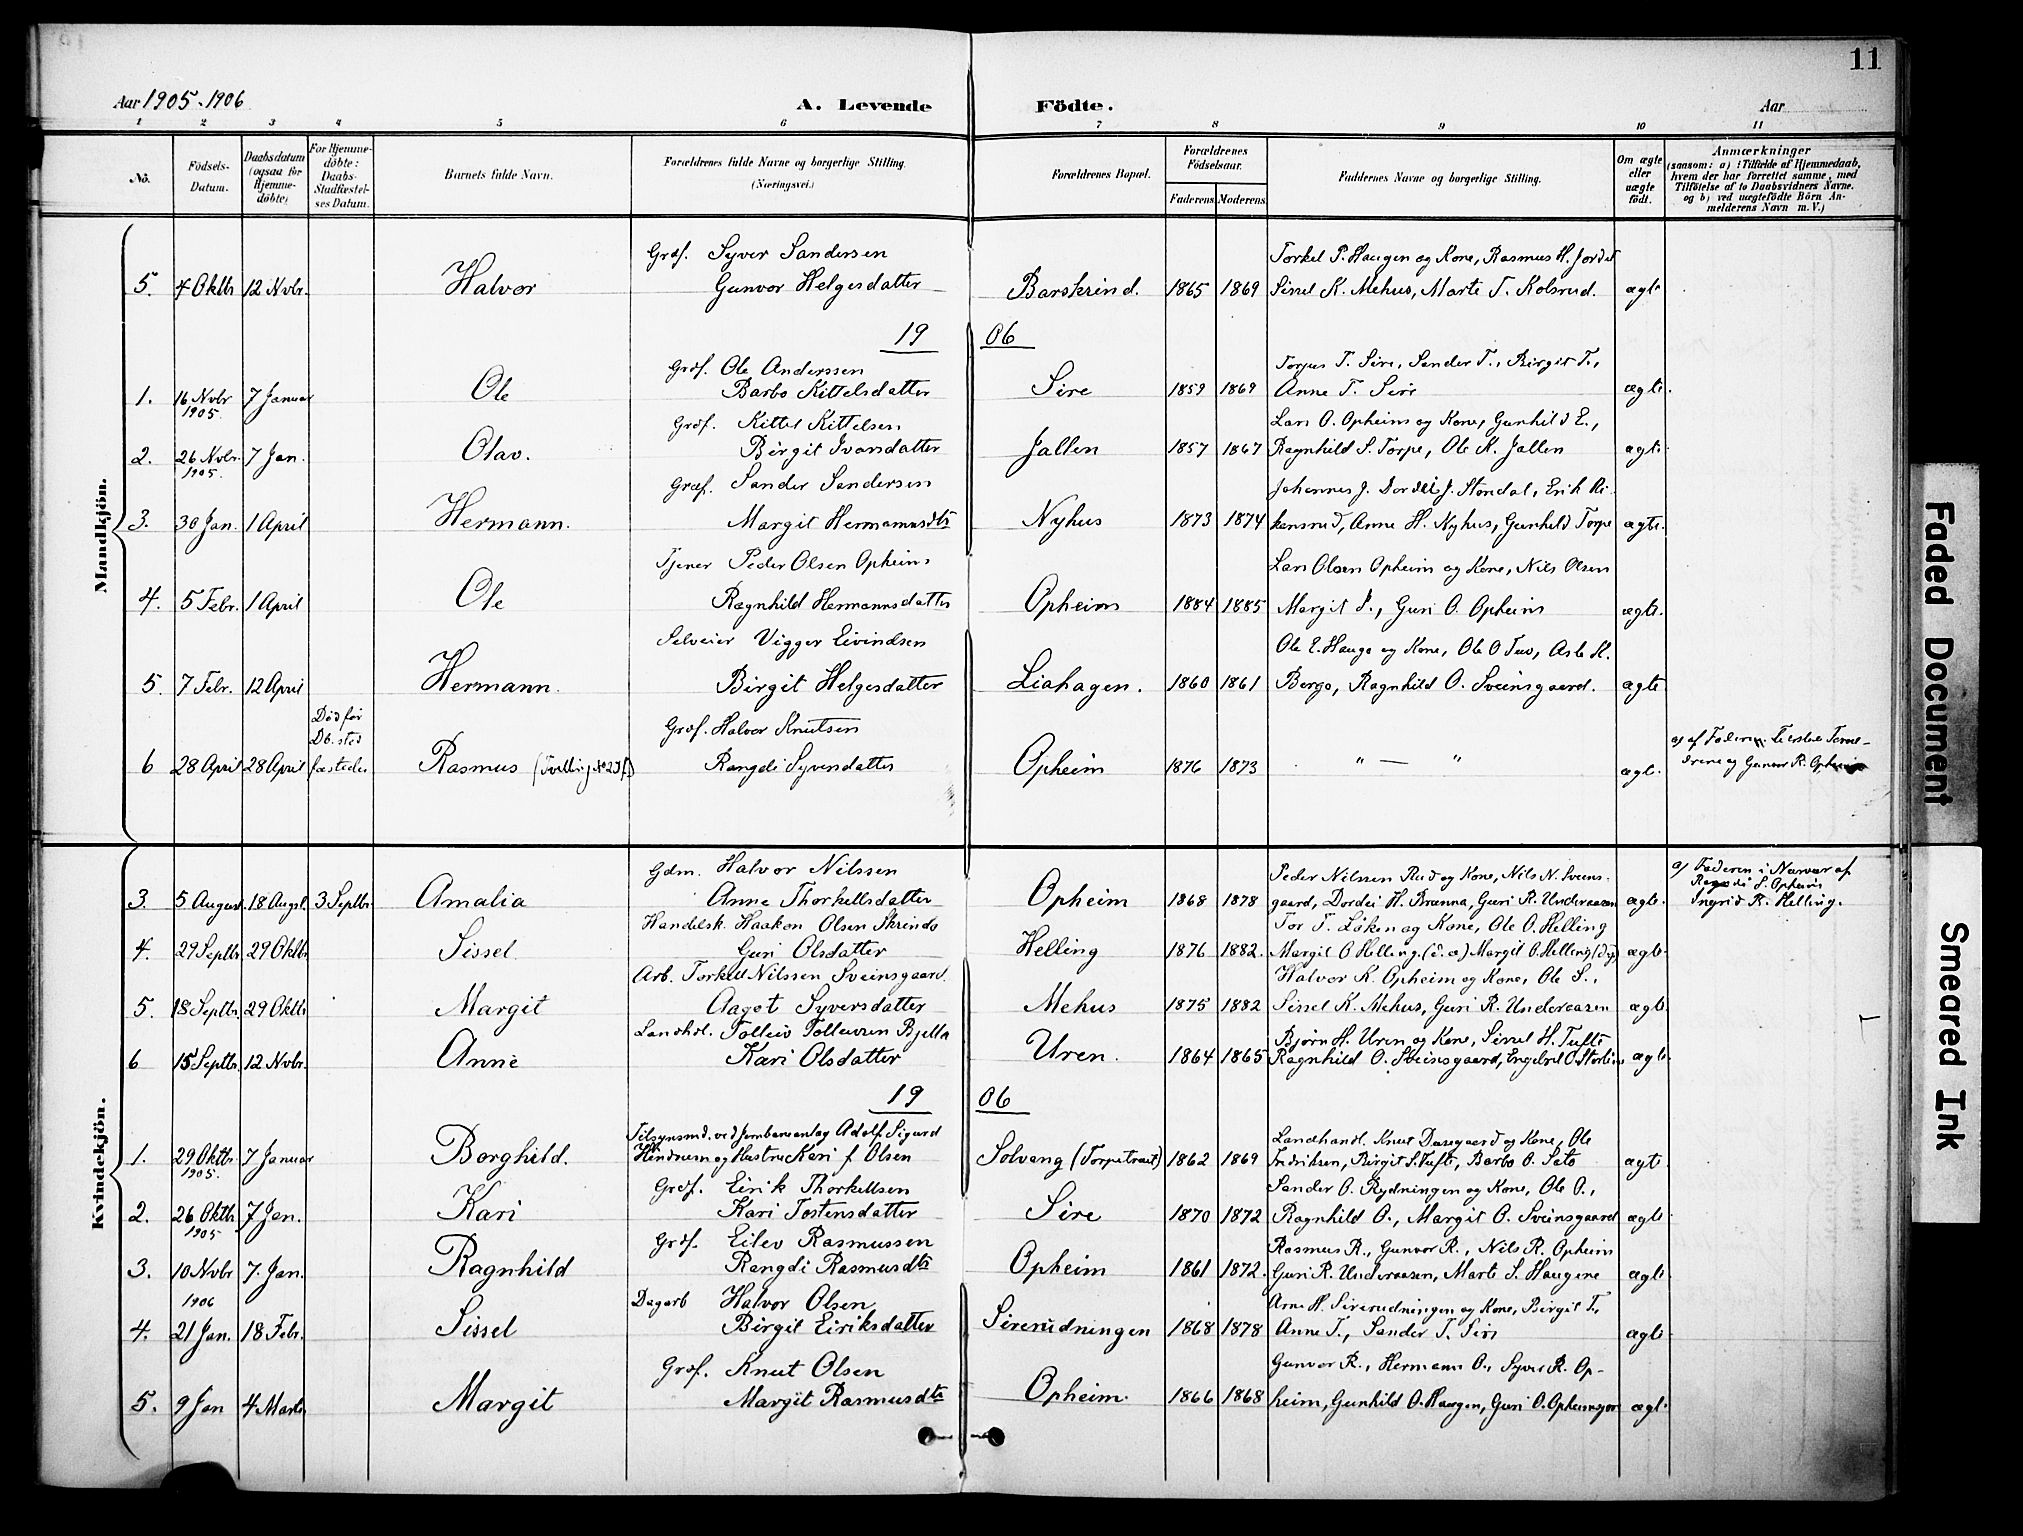 11
Aar 1905-1906
A. Levende Födte.
Aar
1 2 3 4 5 6 7 8 9 10 11
No. Födsels-Datum. Daabsdatum (ogsaa for Hjemme-döbte) For Hjemme-döbte: Daabs-Stadfæstel-ses Datum. Barnets fulde Navn. Forældrenes fulde Navne og borgerlige Stilling. (Næringsvei.) Forældrenes Bopæl. Forældrenes Födselsaar. Faderens Moderens Faddernes Navne og borgerlige Stilling. Om ægte eller uægte födt. Anmærkninger (saasom: a) i Tilfælde af Hjemmedaab, hvem der har forrettet samme, med Tilföielse af to Daabsvidners Navne. og b) ved uægtefödte Börn An-melderens Navn m.V.)
Mandkjön.
Grdf. Syver Sandersen Torkel P. Haugen og Kone, Rasmus H. Jordet
5. 4 Oktbr 12 Nvbr. Halvor Gunvor Helgesdatter Barskrind. 1865 1869 Sissel K. Mehus, Marte T. Kolsrud. ægte
1906
Grdf. Ole Anderssen Torjus T. Sire, Sander T., Birgit T.,
1. 16 Nvbr 1905. 7 Januar Ole Barbo Kittelsdatter Sire 1859 1869 Anne T. Sire ægte.
Grdf. Kittel Kittelsen Lars O. Opheim og Kone, Gunhild E.,
2. 26 Nvbr. 1905. 7 Jan. Olav. Birgit Ivarsdatter Jallen 1857 1867 Ragnhild S. Torpe, Ole K. Jallen ægte.
Grdf. Sander Sandersen Johannes J. Dordei J. Stondal, Erik Ri-
3. 30 Jan. 1 April Hermann. Margit Hermannsdtr Nyhus 1873 1874 kensrud, Anne H. Nyhus, Gunhild Torpe ægte.
Tjener Peder Olsen Opheim Lars Olsen Opheim og Kone, Nils Olsen
4. 5 Febr. 1 April Ole Ragnhild Hermannsdatter Opheim 1884 1885 Margit S., Guri O. Opheim ægte.
Selveier Vigger Eivindsen Ole E. Hauge og Kone, Ole O Tuv, Asle K.
5. 7 Febr. 12 April Hermann. Birgit Helgesdatter Liahagen. 1860 1861 Bergo, Ragnhild O. Sveinsgaard. ægte
Död för Db. sted Grdf. Halvor Knutsen
6 28 April 28 April fæstedes Rasmus (Tvilling Rangdi Syversdatter Opheim 1876 1873 " — " ægte.
a) af Faderen.
og Gunvor R. Opheim
Kvindekjön.
Gdm. Halvor Nilssen Peder Nilssen Rud og Kone, Nils N. Sveins- a) Faderen i Nærvær af
3. 5 August 18 Augst. 3 Septbr. Amalia Anne Thorkellsdatter Opheim 1868 1878 gaard, Dordei H. Brænna, Guri R. Underaasen ægte. S. Opheim Ingrid K. Helling.
Handelsk. Haakon Olsen Skrindo Tor T. Löken og Kone, Ole O. Helling
4. 29 Septbr 29 Oktbr Sissel Guri Olsdatter Helling 1876 1882. Margit O Helling (d. æ) Margit O. Helling (d y) ægte.
Arb. Torkell Nilssen Sveinsgaard. Halvor K. Opheim og Kone, Ole S.,
5. 18 Septbr. 29 Oktbr Margit Aagot Syversdatter Mehus 1875 1882 Sissel K. Mehus, Guri R. Underaasen ægte.
Landhdl. Tolleiv Tolleivsen Bjella Björn H. Uren og Kone, Sissel H. Tufte
6 15 Septbr. 12 Nvbr. Anne Kari Olsdatter Uren. 1864 1865 Ragnhild O. Sveinsgaard, Engebret O. ægte.
1906
Tilsynsmd. ved Jernbaneanlæg Adolf Sigurd Landhandl. Knut Dasegaard og Kone, Ole
1. 29 Oktbr. 1905. 7 Januar Borghild. og Hustru Kari f. Olsen Solvang (Torpetræet) 1862 1869 Fredriksen, Birgit S. Tufte, Barbo O. Sato ægte.
Grdf. Eirik Thorkellsen Sander O. Rydningen og Kone, Ole O.,
2. 26 Oktbr. 1905 7 Jan. Kari Kari Tostensdatter Sire 1870 1872 Ragnhild O., Margit O. Sveinsgaard ægte.
Grdf. Eilev Rasmussen Rasmus R., Gunvor R., Nils R. Opheim
3. 10 Nvbr 7. Jan. Ragnhild Rangdi Rasmusdtr Opheim 1861 1872. Guri R. Underaasen, Marte S. Haugene ægte.
1906 Dagarb Halvor Olsen Arne H. Sirerudningen og Kone, Birgit T.,
4. 21 Jan. 18 Febr. Sissel Birgit Eiriksdatter Sirerudningen 1868 1878 Anne T., Sander T. Sire ægte.
Grdf. Knut Olsen Gunvor R., Hermann O., Syver R. Op-
5. 9 Jan 4 Marts Margit Margit Rasmusdtr Opheim. 1866 1868 heim, Gunhild O. Haugen, Guri O. ægte.
Faded Document
Smeared Ink